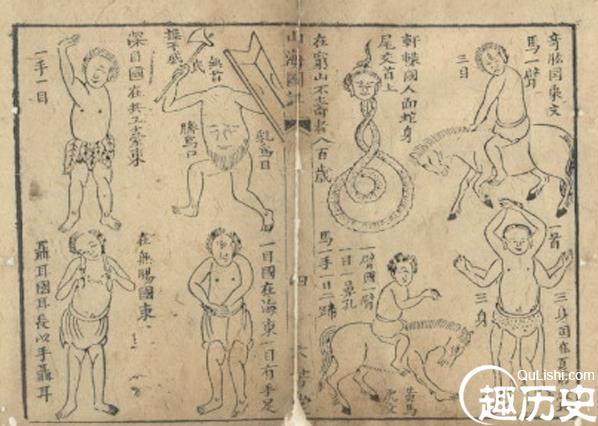 奇肱国乘文
馬一臂
三目
軒轅國人面蛇身
尾交首上
在窮山不壽者八百歲
一首
三身
三身国在
一臂國一臂
一目一鼻孔
馬一手
黃馬
虎文
山海圖
四
乳為目
臍為口
無首
深目國在共工臺東
一手一目
一目國在海東一目有手足
在無腸國東
聶耳國耳長以手聶耳
QuLishi.com
趣历史